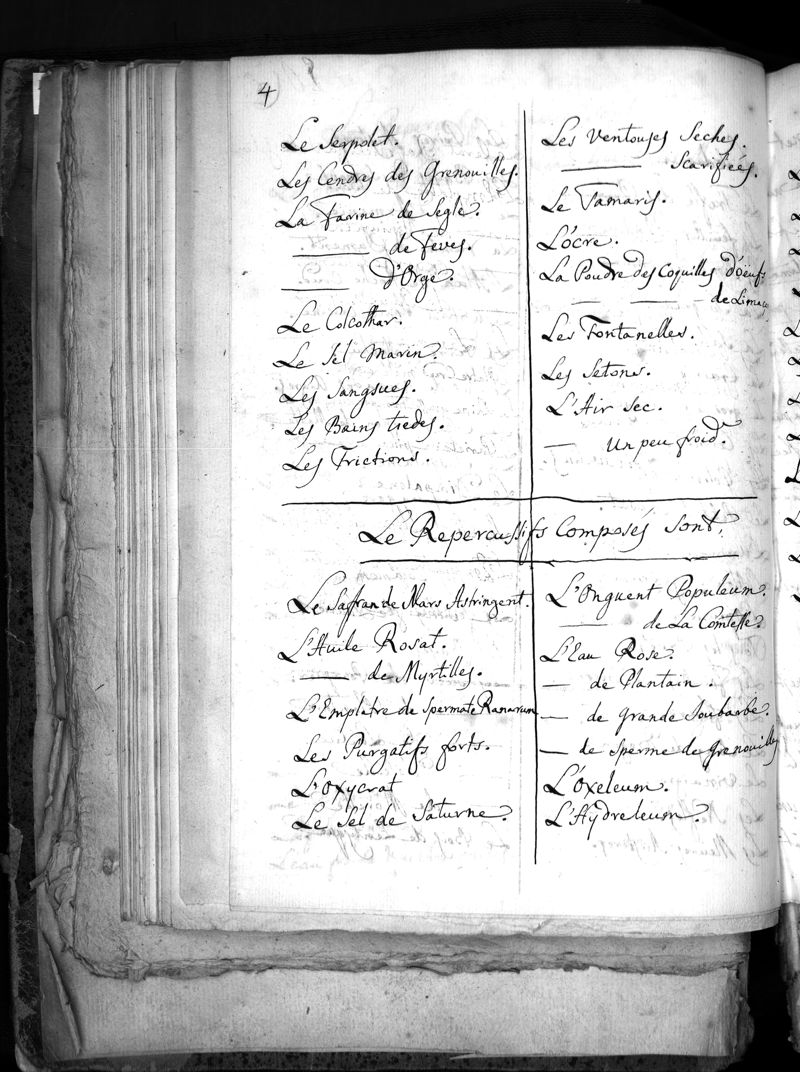 4
Le Serpolet.
Les Cendres des Grenouilles.
La Farine de Segle.
—— de Feves.
—— d'Orge.
Le Colcothar.
Le Sel Marin.
Les Sangsues.
Les Bains tiedes.
Les Frictions.
Les Ventouses Seches.
—— Scarifiées.
Le Tamaris.
L'ócre.
La Poudre des Coquilles d'oeufs
— — — de Limaçs
Les Fontanelles.
Les Setons.
L'Air sec.
— un peu froid.
Le Repercussifs Composés sont,
Le Saffran de Mars Astringent.
L'Huile Rosat.
—— de Myrtilles.
L'Emplatre de Spermate Ranarum
Les Purgatifs forts.
L'Oxycrat
Le Sel de Saturne.
L'Onguent Populeum.
—— de La Comtesse.
L'Eau Rose.
— de Plantain.
— de grande Soubarbe.
— de sperme de Grenouilles
L'Oxeleum.
L'Hydreleum.